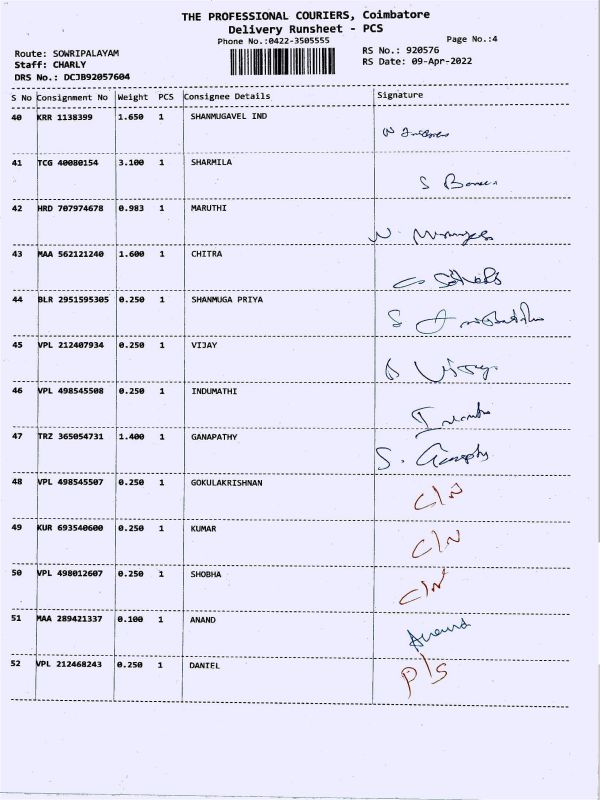 THE PROFESSIONAL COURIERS, Coimbatore
Delivery Runsheet - PCS
Phone No.:0422-3505555
Page No.:4
Route: SOWRIPALAYAM
RS No.: 920576
Staff: CHARLY
RS Date: 09-Apr-2022
DRS No.: DCJB92057604
S No Consignment No Weight PCS Consignee Details Signature
40 KRR 1138399 1.650 1 SHANMUGAVEL IND
41 TCG 40080154 3.100 1 SHARMILA
42 HRD 707974678 0.983 1 MARUTHI
43 MAA 562121240 1.600 1 CHITRA
44 BLR 2951595305 0.250 1 SHANMUGA PRIYA
45 VPL 212407934 0.250 1 VIJAY
46 VPL 498545508 0.250 1 INDUMATHI
47 TRZ 365054731 1.400 1 GANAPATHY S. Ganapthy
48 VPL 498545507 0.250 1 GOKULAKRISHNAN C/N
49 KUR 693540600 0.250 1 KUMAR C/N
50 VPL 498012607 0.250 1 SHOBHA C/N
51 MAA 289421337 0.100 1 ANAND Anand
52 VPL 212468243 0.250 1 DANIEL P/S